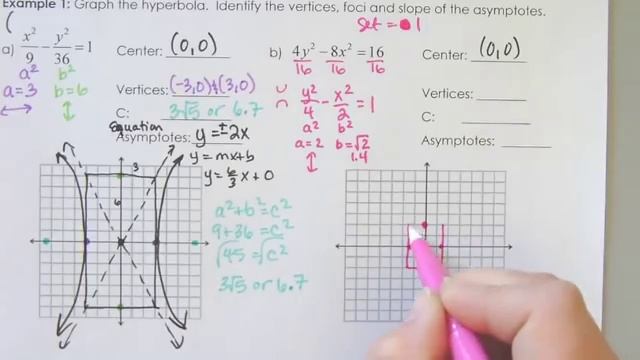 Example 1: Graph the hyperbola. Identify the vertices, foci and slope of the asymptotes.
set = 1
a) x²/9 - y²/36 = 1
a² b²
a=3 b=6
Center: (0,0)
Vertices: (-3,0)&(3,0)
C: 3√5 or 6.7
Equation
Asymptotes: y = ±2x
y = mx+b
y = 6/3 x + 0
3
6
a²+b²=c²
9+36=c²
√45=√c²
3√5 or 6.7
b) 4y² - 8x² = 16
16 16 16
y²/4 - x²/2 = 1
a² b²
a=2 b=√2
1.4
Center: (0,0)
Vertices:
C:
Asymptotes: